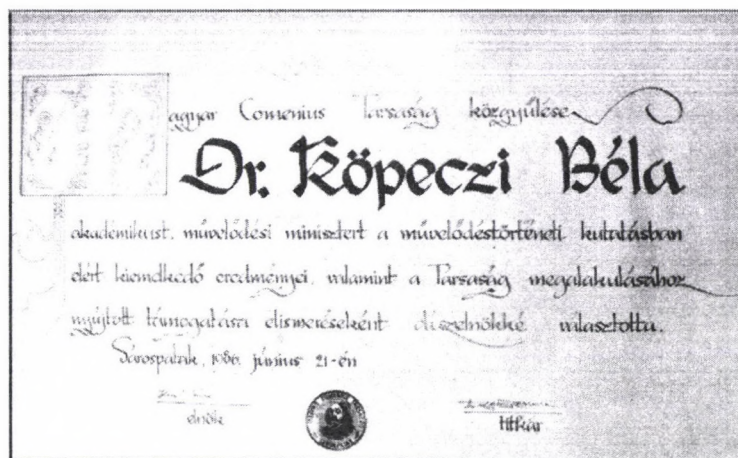 Magyar Comenius Társaság közgyűlése
Dr. Köpeczi Béla
akadémikust, művelődési minisztert a művelődéstörténeti kutatásban
elért kiemelkedő eredményei, valamint a Társaság megalakulásához
nyújtott támogatása elismeréseként díszelnökké választotta.
Sárospatak, 1986. június 21-én
elnök
titkár